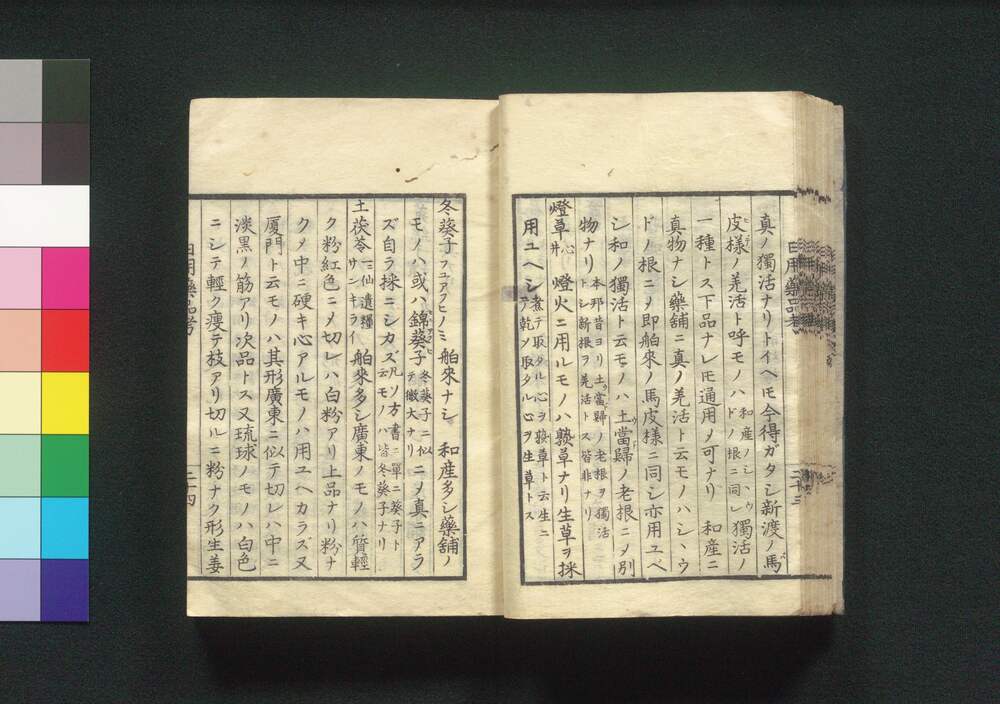 真ノ獨活ナリトイヘ𪜈今得ガタシ新渡ノ馬
皮様ノ羌活ト呼モノハ和産ノシヽウドノ根ニ同シ獨活ノ
一種トス下品ナレ𪜈通用〆可ナリ 和産ニ
真物ナシ藥舗ニ真ノ羌活ト云モノハシヽウ
ドノ根ニ〆即舶來ノ馬皮様ニ同シ亦用ユベ
シ和ノ獨活ト云モノハ土當歸ノ老根ニ〆別
物ナリ本邦昔ヨリ土當歸ノ老根ヲ獨活
トシ新根ヲ羌活トス皆非ナリ
燈草心艸 燈火ニ用ルモノハ熟草ナリ生草ヲ採
用ユヘシ煮テ取タル心ヲ熟草ト云生ニ
テ乾ソ取タル心ヲ生草トス
日用藥品考
二十三
冬葵子フユアフヒノミ 舶來ナシ 和産多シ藥舗ノ
モノハ或ハ錦葵子冬葵子ニ似テ微大ナリニ〆真ニアラ
ズ自ラ採ニシカズ凡ソ方書ニ單ニ葵子ト
云モノハ皆冬葵子ナリ
土茯苓仙遺糧サンキライ 舶來多シ廣東ノモノハ質輕
ク粉紅色ニ〆切レハ白粉アリ上品ナリ粉ナ
ク〆中ニ硬キ心アルモノハ用ユヘカラズ又
厦門ト云モノハ其形廣東ニ似テ切レハ中ニ
淡黒ノ筋アリ次品トス又琉球ノモノハ白色
ニシテ輕ク瘦テ枝アリ切ルニ粉ナク形生姜
日用藥品考